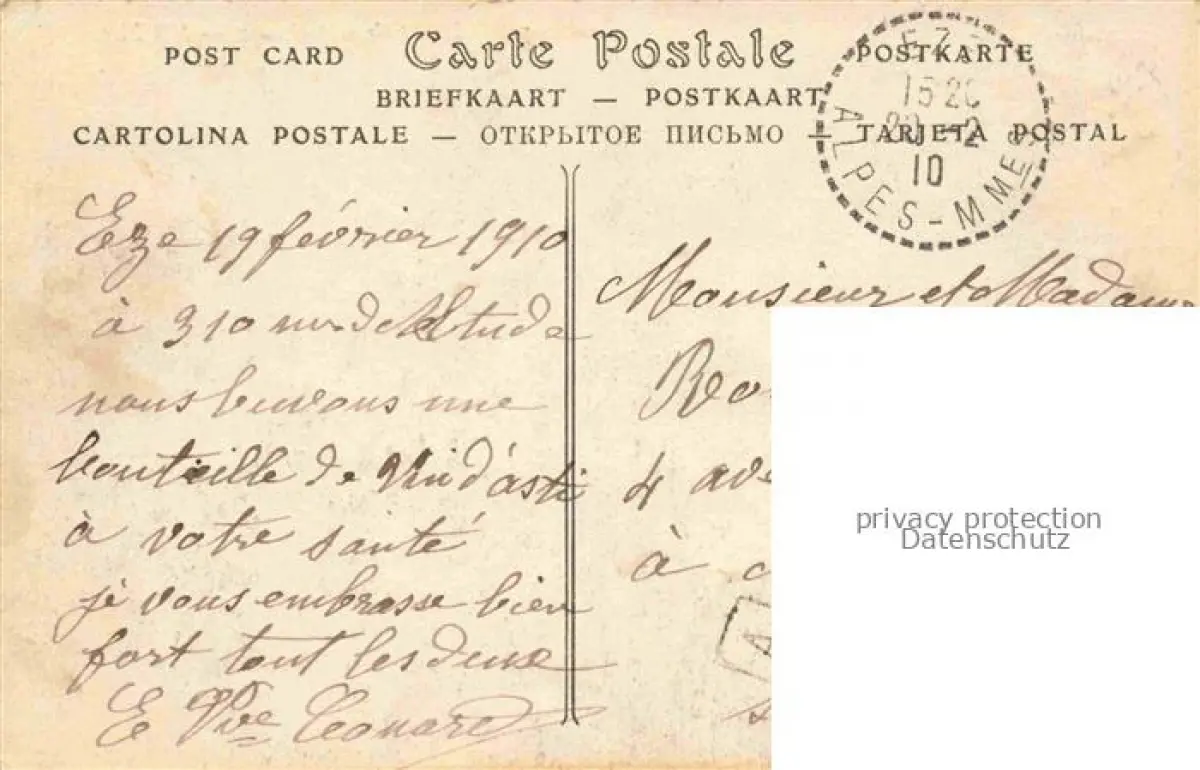 POST CARD Carte Postale POSTKARTE
BRIEFKAART — POSTKAART
CARTOLINA POSTALE — ОТКРЫТОЕ ПИСЬМО — TARJETA POSTAL
EZE
15 20
20 -2
10
ALPES-MMES
Eze 19 février 1910
à 310 m d'altitude
nous buvons une
bouteille de Vin d'asti
à votre santé
je vous embrasse bien
fort tout les deux
E Vve
Monsieur et Madame
4
à
privacy protection
Datenschutz